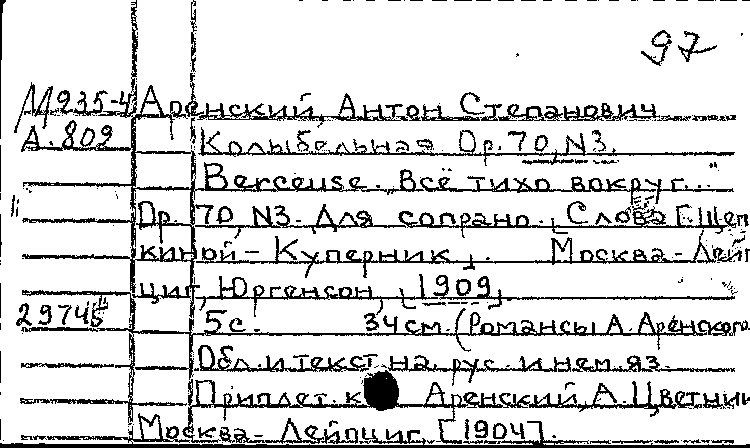 97
М935-4 Аренский, Антон Степанович
А.809 Колыбельная Op. 70, N3.
Berceuse. „Всё тихо вокруг..."
Op. 70, N3. Для сопрано. [Слова Г. Щеп
киной-Куперник]. Москва-Лейп
циг, Юргенсон, [1909].
29745 5 с. 34 см. (Романсы А. Аренского
Обл. и текст на рус. и нем. яз.
Приплет. к Аренский, А. Цветник
Москва-Лейпциг, [1904].